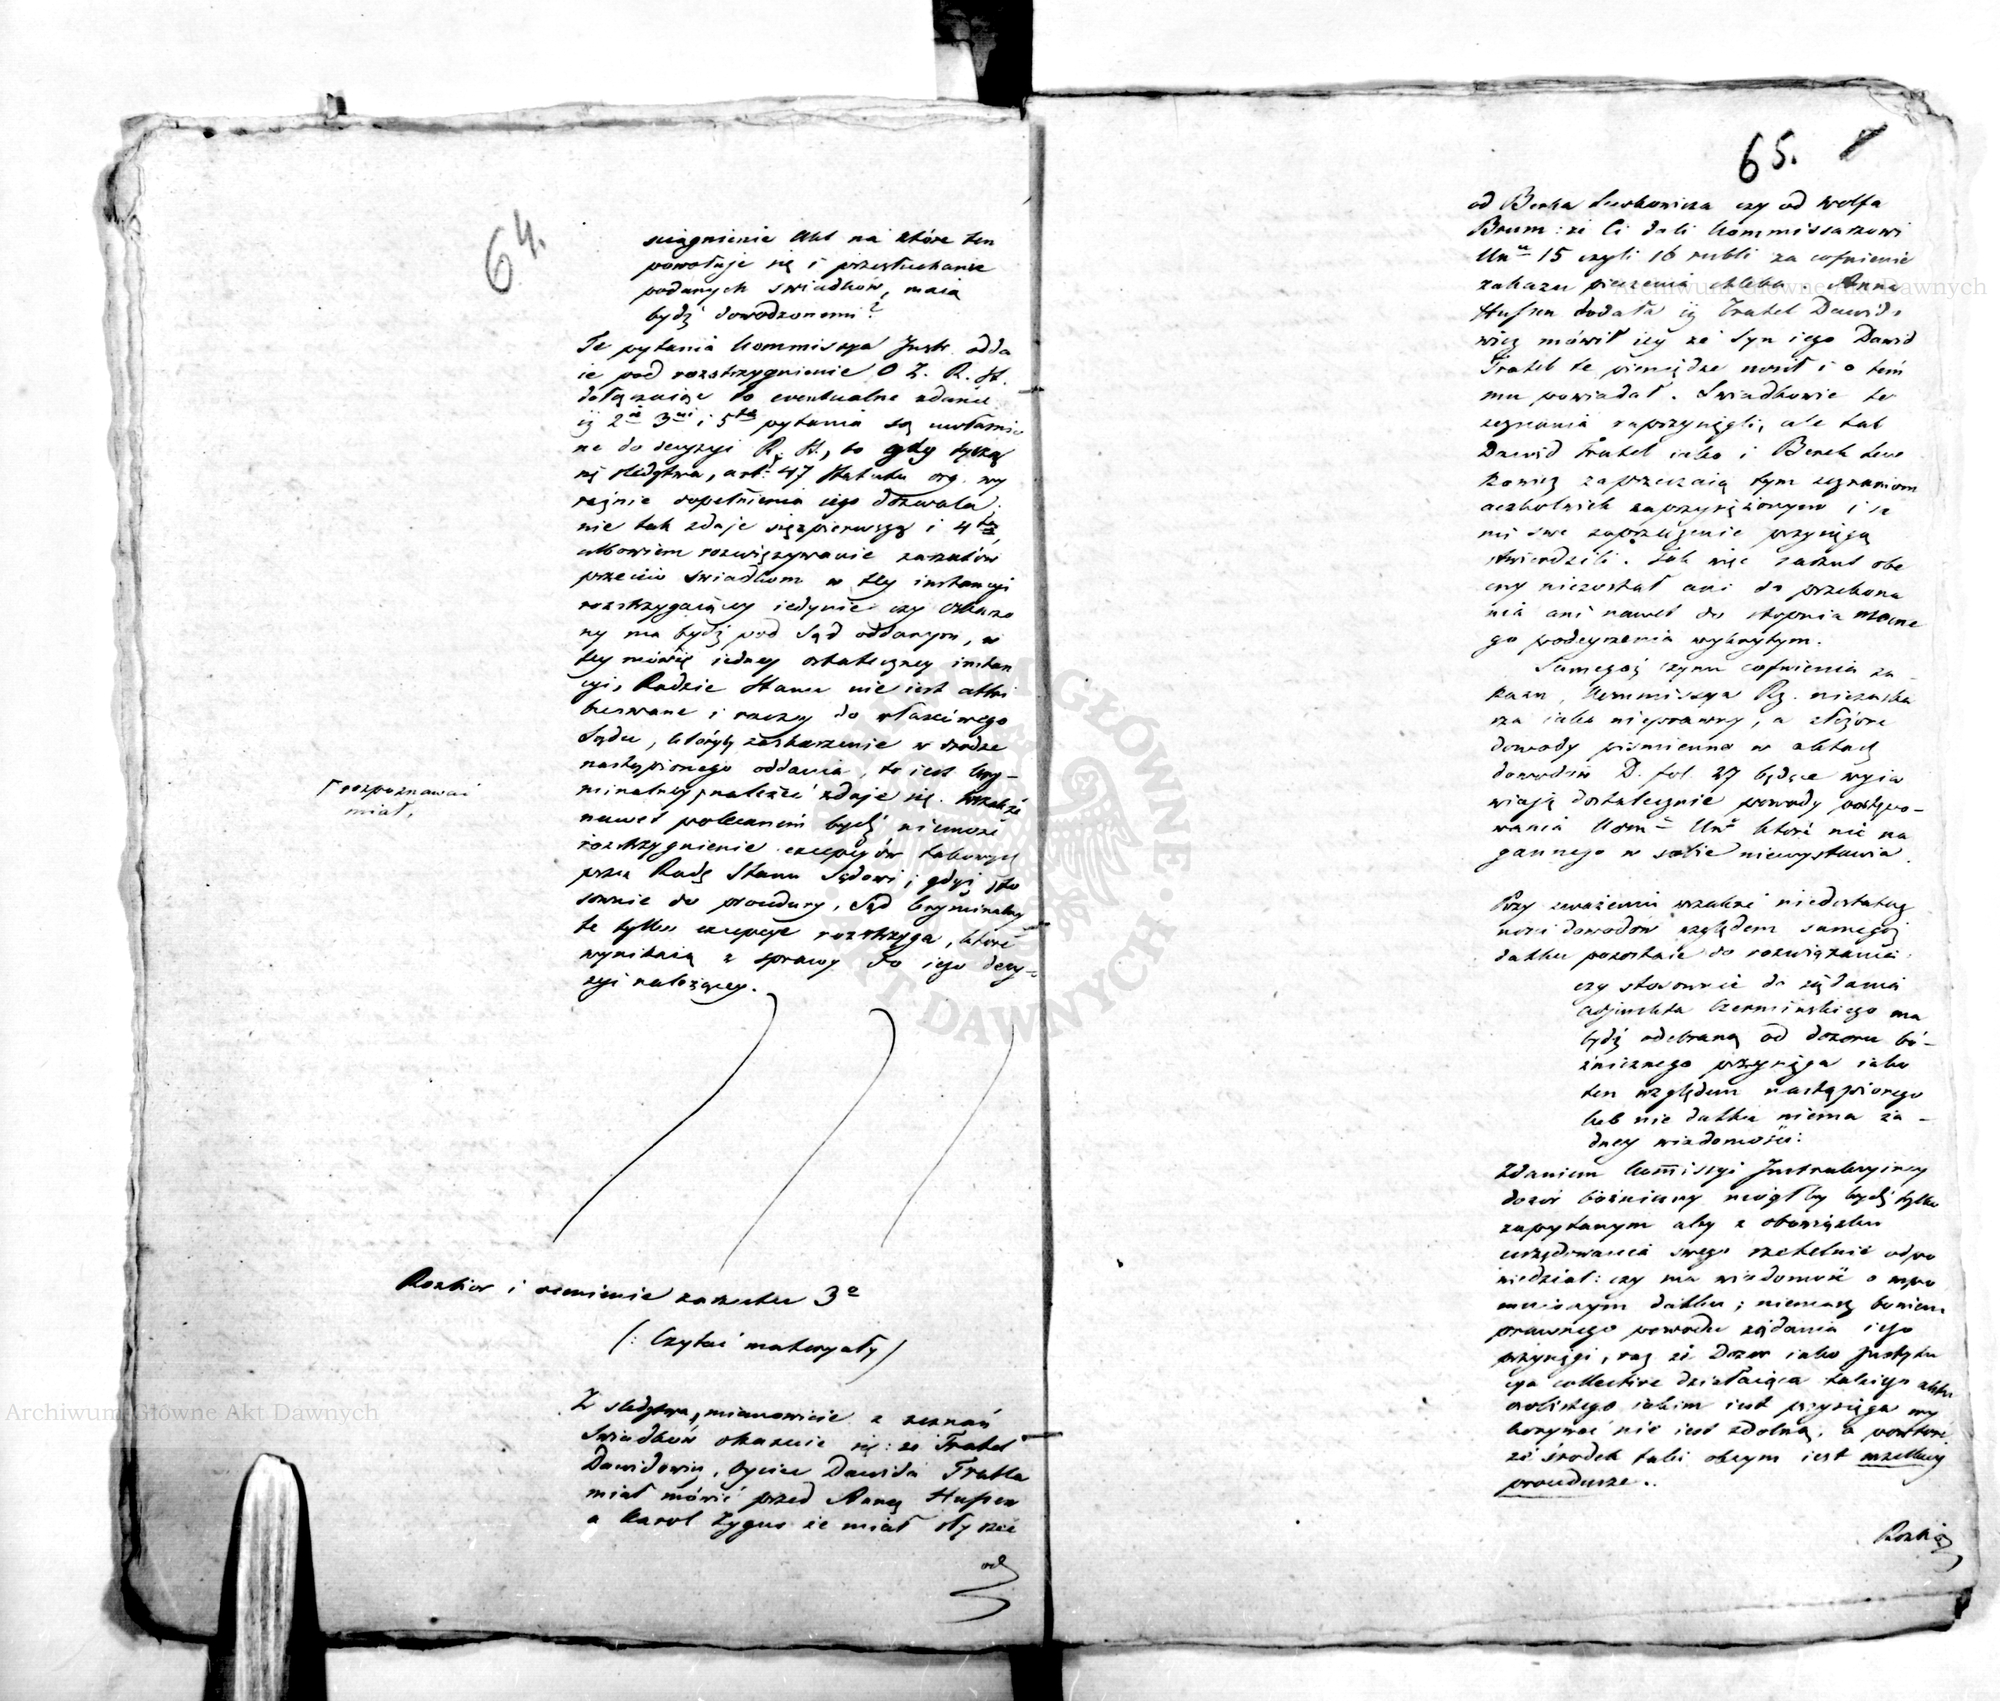 64.
sciągnienie Akt na które ten
powołuje się i przesłuchanie
podanych swiadków, maią
bydź dowodzonemi?
Te pytania Kommissya Instr. odda
ie pod rozstrzygnienie O Z. R. St.
dołączaiąc to eventualne zdanie
iż 2ie 3cie i 5te pytania są
do decyzyi R. St., bo gdy tyczą
się śledztwa, art. 47 Statutu org. wy
raźnie dopełnienia iego dozwala;
nie tak zdaje się z pierwszą i 4tą
albowiem rozwiązywanie zarzutów
przeciw swiadkom w tey instancyi
rozstrzygaiącey iedynie czy oskarżo
ny ma bydź pod Sąd oddanym, w
tey mówię iedney ostateczney instan
cyi, Radzie Stanu nie iest attri
buowane i rzeczy do właściwego
Sądu, któryby zaskarżenie w drodze
nastąpionego oddania, to iest kry-
minalney, należeć zdaje się. wszakże
nawet poleceniem bydź niemoże
rozstrzygnienie excepcyów takowych
przez Radę Stanu Sądowi; gdyż sto
sownie do procedury, Sąd kryminalny
te tylko excepcye rozstrzyga, które
wynikaią z sprawy do iego decy-
zyi należącey.
Γ rozpoznawać
miał,
Rozbior i ocenienie zarzutu 3º
(: Czytać materyały)
Z śledztwa, mianowicie z zeznań
Swiadków okazuie się: że Fratel
Dawidowicz, oyciec Dawida Fratla
miał mówić przed Anną Hufsen
a Karol Zygus że miał słyszeć
od
65.
od Berka Lewkowicza czy od Wolfa
Brum: że Ci dali Kommissarzowi
15 czyli 16 rubli za cofnienie
zakazu pieczenia chleba. Anna
Hufsen dodała iż Fratel Dawido
wicz mówił iey że Syn iego Dawid
Fratel te pieniądze nosił i o tem
mu powiadał. Swiadkowie te
zeznania zaprzysięgli, ale tak
Dawid Fratel iako i Berek Lew
kowicz zaprzeczaią tym zeznaniom
aczkolwiek zaprzysiężonym i sa
mi swe zaprzeczenie przysięgą
stwierdzili. Tak więc zarzut obe
cny niezostał ani do przekona
nia ani nawet do stopnia mocne
go podeyrzenia wykrytym.
Samegoż czynu cofnienia za-
kazu, Kommissya Rz. niezaska
rża iako nieprawny, a złożone
dowody pismienne w aktach
dowodów D. fol. 27 będące wyja
wiaią dostatecznie powody postępo-
wania które nic na
gannego w sobie niewystawia.
Przy zważeniu wszakże niedostatecz
ności dowodów względem samegoż
datku pozostaie do rozwiązania:
czy stosownie do żądania
Adjunkta Czermińskiego ma
bydź odebraną od dozoru bó-
żnicznego przysięga iako
ten względem nastąpionego
lub nie datku niema ża-
dney wiadomości:
Zdaniem Kommissyi Instrukcyiney
dozór bóżniczny mógłby bydź tylko
zapytanym aby z obowiązku
urzędowania swego rzetelnie odpo
wiedział: czy ma wiadomość o wspo
mnionym datku; niemasz bowiem
prawnego powodu żądania iego
przysięgi, raz że Dozor iako Instytu
cya collective działaiąca takiego aktu
osobistego iakim iest przysięga wy
konywać nie iest zdolną, a powtóre
że środek taki obcym iest wszelkiey
procedurze.
Rozbiór